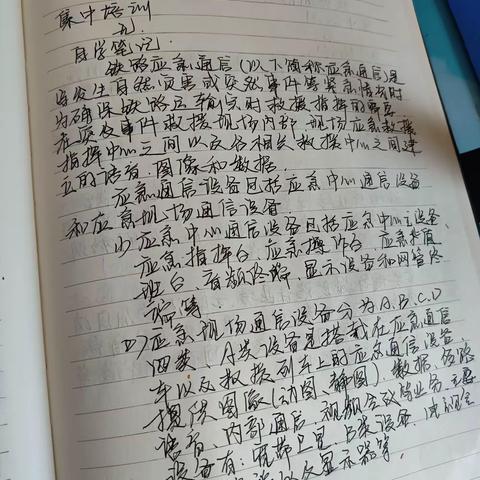 集中培训
九.
自学笔记.
铁路应急通信(以下简称应急通信)是
当发生自然灾害或突然事件等紧急情况时
为确保铁路运输实时救援指挥的需要
在突发事件救援现场内部 现场应急救援
指挥中心之间以及各相关救援中心之间建
立的语音、图像和数据.
应急通信设备包括应急中心通信设备
和应急现场通信设备
1) 应急中心通信设备包括应急中心主设备、
应急指挥台、应急操作台、应急值
班台、音频终端、显示设备和网管终
端等.
2) 应急现场通信设备分为A.B.C.D
四类、A类设备是搭载在应急通信
车以及救援列车上的应急通信设备
提供图像(动图、静图)、数据、各路
语音、内部通话、视频会议等业务 主要
设备有: 宽带卫星
以及显示器等,